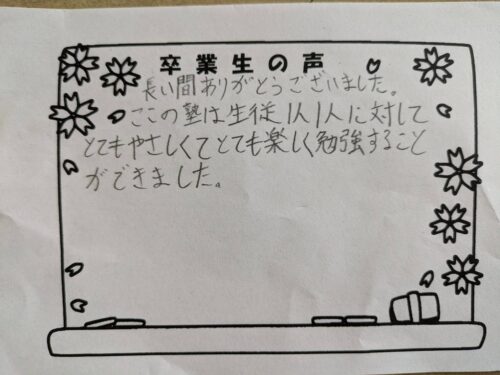 卒業生の声
長い間ありがとうございました。
ここの塾は生徒1人1人に対して
とてもやさしくてとても楽しく勉強すること
ができました。